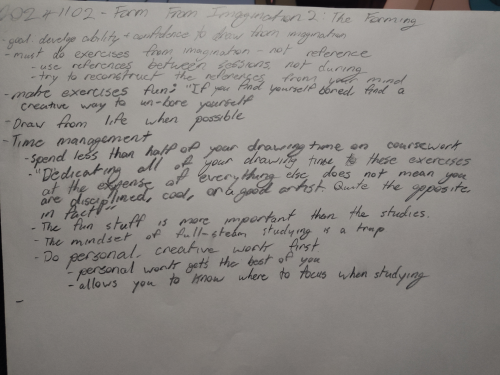 2024 1102 - Form From Imagination 2: The Forming
-goal develop ability + confidence to draw from imagination
- must do exercises from imagination - not reference
- use references between sessions, not during
- try to reconstruct the references from your mind
- make exercises fun: "If you find yourself bored find a
creative way to un-bore yourself
- Draw from life when possible
- Time management
- Spend less than half of your drawing time on coursework
- "Dedicating all of your drawing time to these exercises
at the expense of everything else does not mean you
are disciplined, cool, or a good artist. Quite the opposite
in fact!"
- The fun stuff is more important than the studies.
- The mindset of full-steam studying is a trap
- Do personal, creative work first
- personal work gets the best of you
- allows you to know where to focus when studying
-